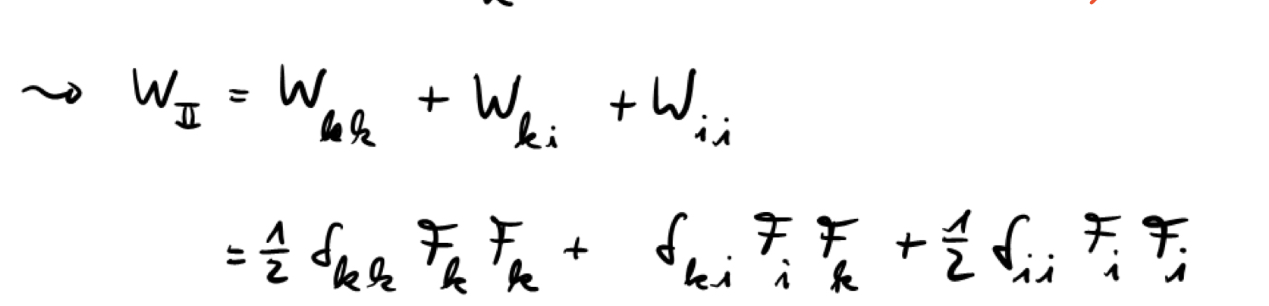 ⇝ W_II = W_kk + W_ki + W_ii
= 1/2 δ_kk F_k F_k + δ_ki F_i F_k + 1/2 δ_ii F_i F_i